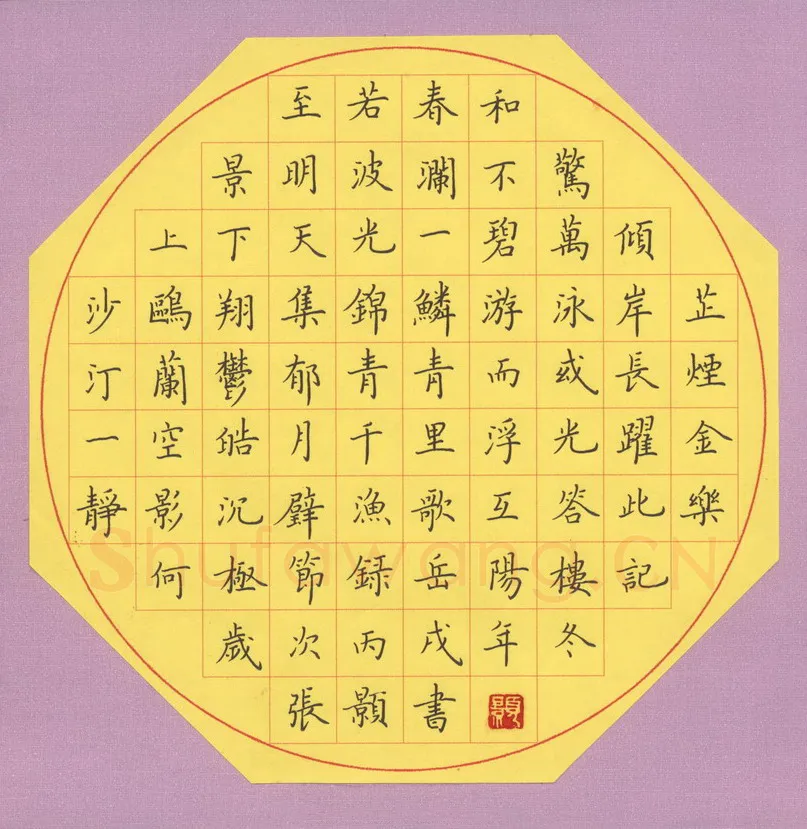 至若春和
景明波瀾不驚
上下天光一碧萬傾
沙鷗翔集錦鱗游泳岸芷
汀蘭鬱郁青青而或長煙
一空皓月千里浮光躍金
靜影沉璧漁歌互答此樂
何極節録岳陽樓記
歲次丙戌年冬
張顥書
Shufawang.CN